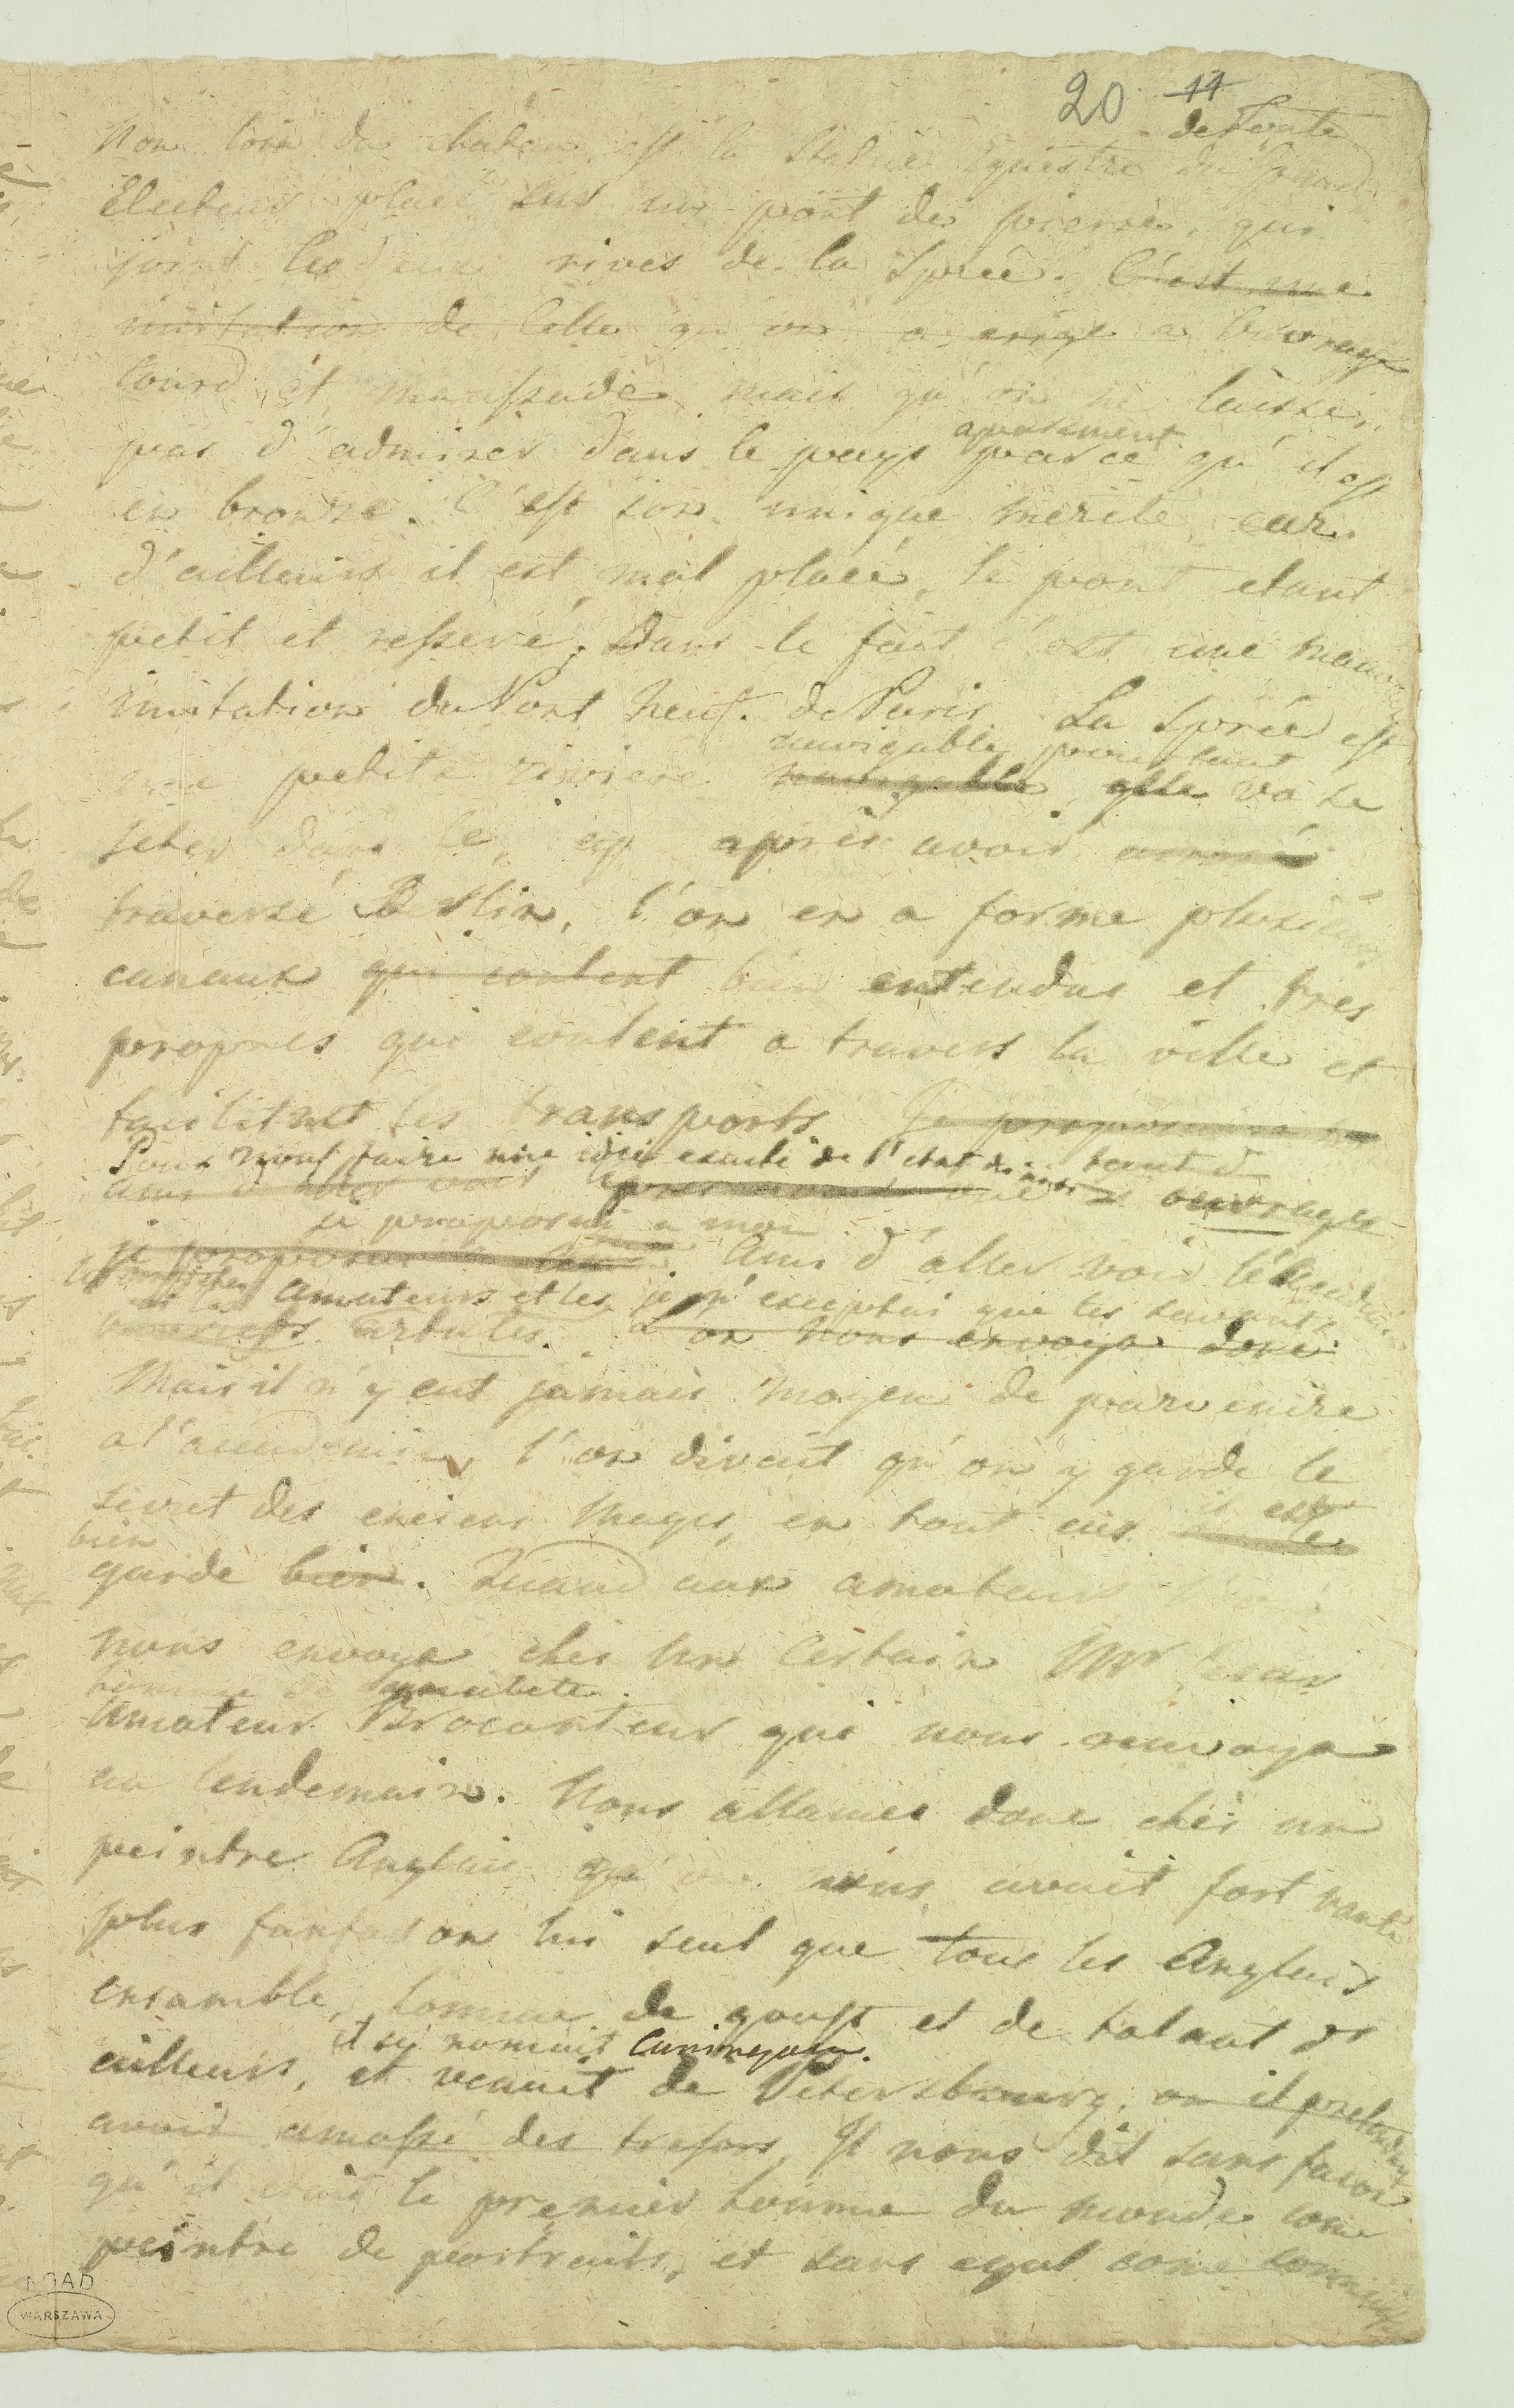 20 11
de Fonte
Non loin du chateau est la Statue Equestre du grand
Electeur placé sur un pont de pierre, qui
joint les deux rives de la Sprée. C'est une
imitation de Celle qu'on a erigé a Ouvrage
lourd et maussade mais qu'on ne laisse
aparement
pas d'admirer dans le pays parce qu'il est
en bronze. C'est son unique merite car
d'ailleurs il est mal placé, le pont etant
petit et resseré; dans le fait c'est une mauvaise
imitation du Pont Neuf de Paris. La Sprée est
navigable pourtant
une petite riviere navigable elle va se
jeter dans le après avoir
traversé Berlin, l'on en a forme plusieurs
canaux qui coulent bien entendus et tres
propres qui coulent a travers la ville et
facilitent les transports Je proposai
Pour nous faire une idée exacte de l'etat tant d
ouvrages
je proposai a mon
je proposai Ami d'aller voir l'Academie
amateurs et les je n'exceptai que les savants
artistes. L'on nous envoya donc
Mais il n'y eut jamais moyen de parvenire
a l'academie, l'on diroit qu'on y garde le
secret des enciens Mages, en tout cas il est le
bien
garde bien. Quand aux amateurs l'on
nous envoya chès un certain Mr
homme de
Amateur Brocanteur qui nous renvoya
au lendemain. Nous allames donc chès un
peintre Anglais qu'on nous avait fort vanté
plus fanfaron lui seul que tous les Anglais
ensamble, homme de goust et de talant d'
il se nomait Cuningham.
ailleurs, et venait de Petersbourg, ou il pretendait
avoir amassé des tresors, Il nous dit sans facon
qu'il etait le premier homme du monde come
peintre de portraits, et sans egal come
AGAD
WARSZAWA